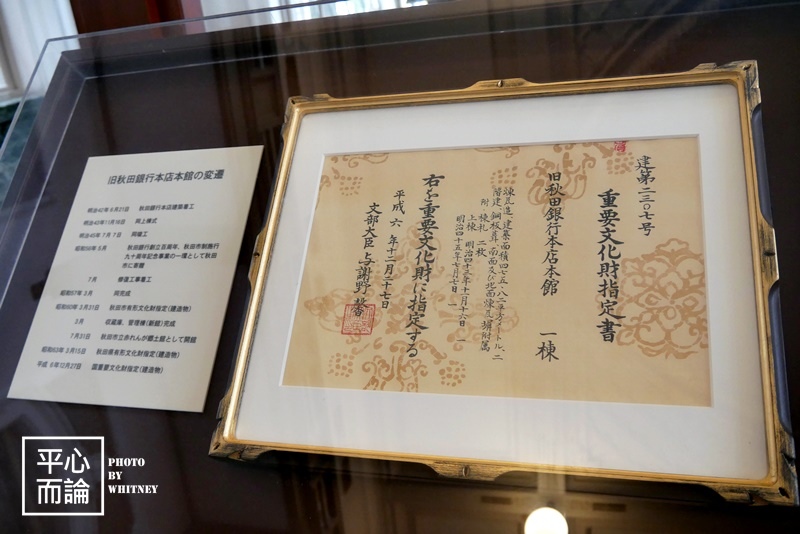 旧秋田銀行本店本館の変遷
明治42年6月21日 秋田銀行本店建築着工
明治43年11月16日 同上棟式
明治45年7月7日 同竣工
昭和56年5月 秋田銀行創立百周年、秋田市制施行
九十周年記念事業の一環として秋田
市に寄贈
7月 修復工事着工
昭和57年3月 同完成
昭和60年3月31日 秋田市有形文化財指定(建造物)
3月 収蔵庫、管理棟(新館)完成
7月21日 秋田市立赤れんが郷土館として開館
昭和63年3月15日 秋田県有形文化財指定(建造物)
平成6年12月27日 国重要文化財指定(建造物)
建第二三〇七号
重要文化財指定書
旧秋田銀行本店本館 一棟
煉瓦造、建築面積四七五・八二平方メートル、二
階建、銅板葺、南面及び北面煉瓦塀附属
附 棟札 二枚
上棟 明治四十三年十一月十六日 一
明治四十五年七月七日 一
右を重要文化財に指定する
平成六年十二月二十七日
文部大臣 与謝野馨
平心
而論
PHOTO
BY
WHITNEY